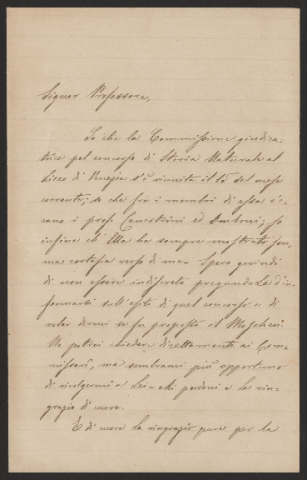 Signor Professore,
So che la Commissione giudica-
trice pel concorso di Storia Naturale al
Liceo di Venezia s'è riunita il 10 del mese
corrente; so che fra i membri di essa c'e-
rano i prof. Canestrini ed Omboni; so
infine ch'Ella ha sempre mostrato som-
ma cortesia verso di me. Spero quindi
di non essere indiscreto pregandola d'in-
formarsi sull'esito di quel concorso e di
voler dirmi se fu proposto il
Ne potrei chiedere direttamente ai Com-
missari, ma sembrami più opportuno
di rivolgermi a Lei: mi perdoni e La rin-
grazio di cuore.
E di cuore La ringrazio pure per la